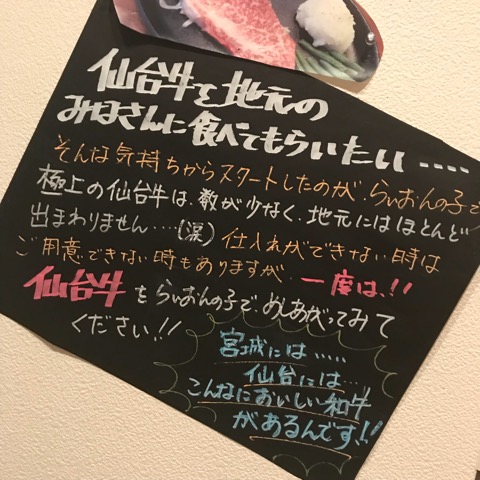 仙台牛を地元の
みなさんに食べてもらいたい‥‥
そんな気持ちからスタートしたのが、らいおんの子で
極上の仙台牛は、数が少なく、地元にはほとんど
出まわりません‥‥(涙) 仕入れができない時は
ご用意できない時もありますが、一度は、!!
仙台牛をらいおんの子で、めしあがってみて
ください!!
宮城には‥‥‥
仙台には‥
こんなにおいしい和牛
があるんです、!!